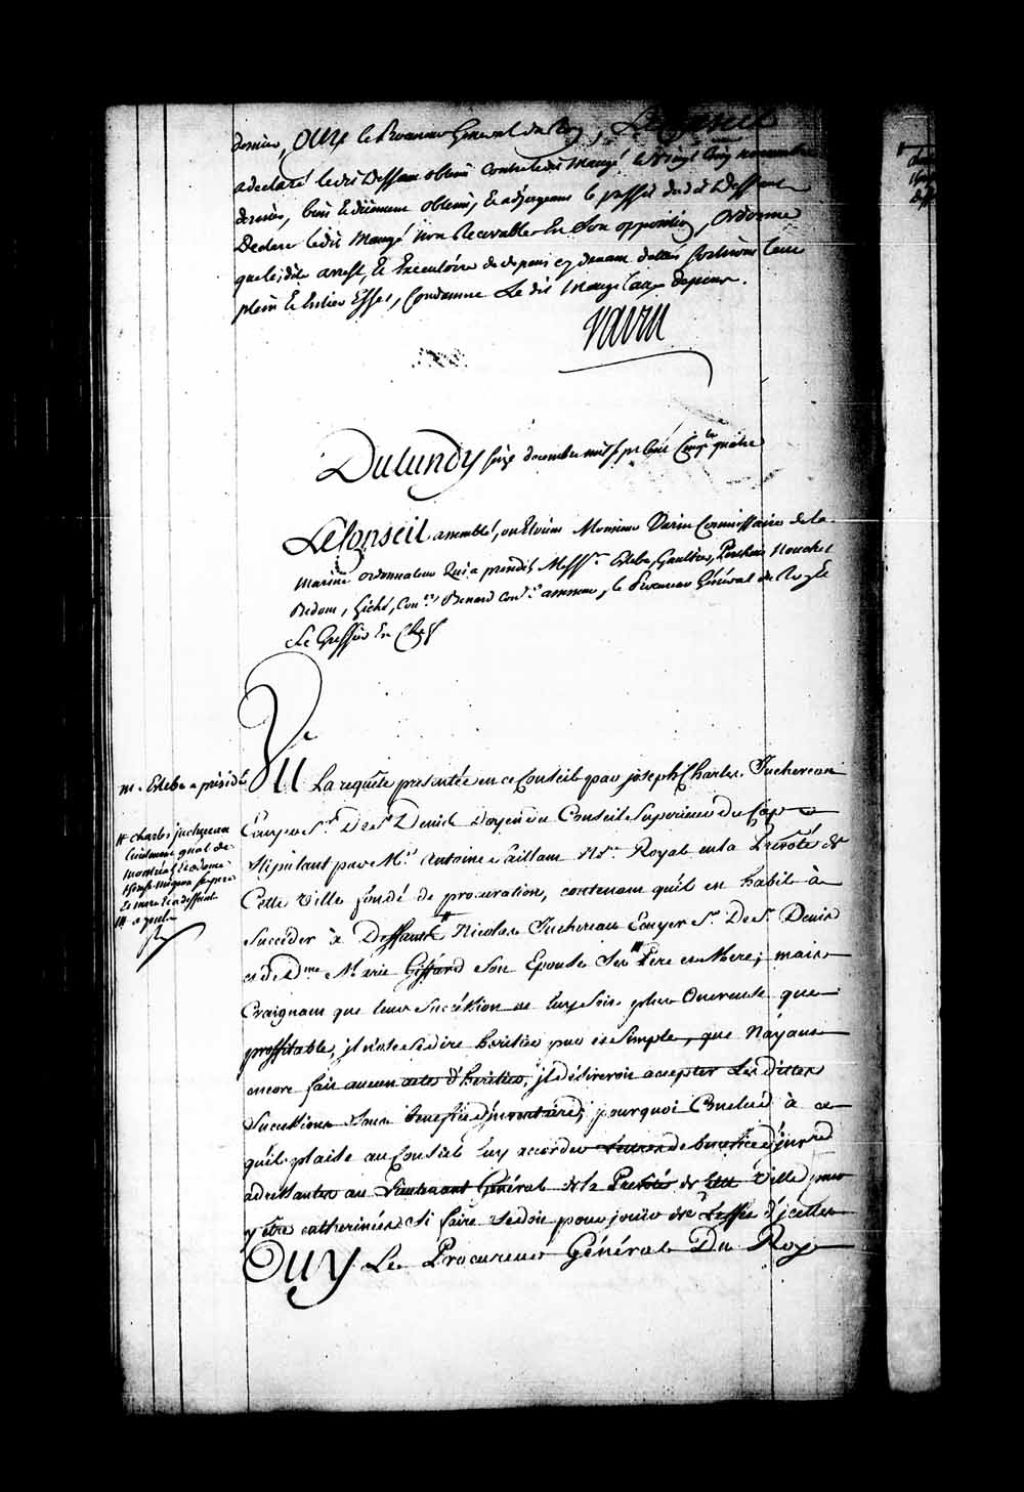 dernier, Ouy le Procureur General du Roy, Le Conseil
a declaré ledit Deffaut obtenu contre ledit Maugé le Vingt cinq novembre
dernier, bien Et düement obtenu, Et adjugeant le proffit dudit Deffaut
Declare ledit Maugé Non Recevable En Son opposition, ordonne
que ledit arrest, Et Executoire de depens cy devant dattés sortiront leur
plein Et Entier Effet, Condamne Le dit Maugé aux depens.
Varin
Du Lundy seize decembre mil sept cent Cinqte quatre
Le Conseil assemblé, ou Etoient Monsieur Varin Commissaire de la
Marine ordonnateur qui a presidé, Messrs. Estebe, Gaultier, Perthuis Nouchet
Bedout, Guillet, Conrs Benard conr assesseur, le Procureur Général du Roy Et
Le Greffier En Chef
m. Estebe a présidé
Vu La requête presentée en ce Conseil par joseph Charles Juchereau
Ecuyer Sr. De St Denis Doyen du Conseil Superieur du Cap
Stipulant par Me. Antoine Saillant Nre. Royal en la Prevôté de
Cette Ville fondé de procuration, contenant qu'il est habile à
Succeder à Deffunt Nicolas Juchereau Ecuyer Sr. De St Denis
et de Dme Marie Giffard Son Epouse Ses Pere et Mere; mais
Craignant que leur Succession ne luy Soit plus Onereuse que
proffitable, il n'ose se dire heritier pur et Simple, que N'ayant
encore fait aucun acte d'heritier, il désireroit accepter Les dittes
Successions sous benefice d'inventaire; pourquoi Conclud à ce
qu'il plaise au Conseil luy accorder Lettres de benefice d'invre
adressantes au Lieutenant Général de la Prevôté de cette Ville pour
y être entherinées Si faire se doit pour jouir de l'effet d'jcelles
Ouy Le Procureur Général Du Roy
# charles juchereau
Lieutenant gnal de
Montréal et a dame